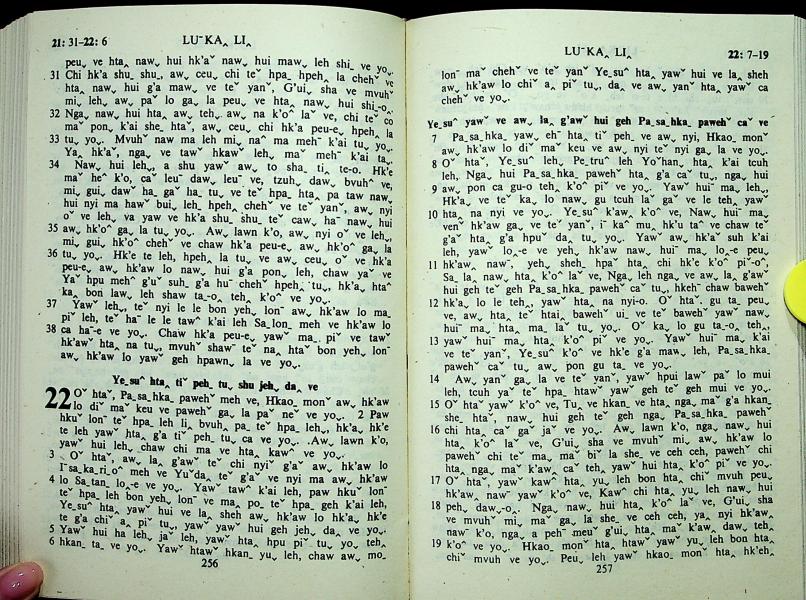 21: 31-22: 6
LUˉ KA‸ LI‸
peu ˬ ve hta‸ nawˬ hui hk'aˇ nawˬ hui mawˬ leh shi_ ve yoˬ.
31 Chi hk'a shu_ shu_, aw‸ ceu‸ chi teˇ hpa_ hpeh‸ la chehˇ ve
hta‸ nawˬ hui g'a maw ve teˇ yanˇ, G'ui‸ sha ve mvuhˇ
mi_ leh, aw‸ paˇ lo ga‸ la peu ˬ ve hta‸ nawˬ hui shi_-o‸.
32 Nga‸ nawˬ hui hta‸ aw‸ teh‸ aw‸ na k'oˆ laˇ ve, chi teˇ co
maˇ pon‸ k'ai she_ htaˇ, aw‸ ceu‸ chi hk'a peu-e‸ hpeh‸ la
33 tu‸ yoˬ. Mvuhˇ naw ma leh mi‸ naˆ ma mehˉ k'ai tu‸ yoˬ,
Ya‸ hk'aˇ, nga‸ ve tawˇ hkawˇ leh‸ maˇ mehˉ k'ai ta‸.
34 Nawˬ hui leh‸, a shu yawˇ aw‸ to sha_ ti‸ te-o. Hk'e
maˇ heˆ k'o, caˇ leuˇ dawˬ leuˇ ve, tzuhˬ dawˬ bvuhˆ ve,
mi‸ gui‸ dawˇ ha‸ gaˇ ha‸ tu‸ ve teˇ hpa_ hta‸ pa taw naw‸
hui nyi ma hawˇ bui‸ leh‸ hpeh‸ chehˇ ve teˇ yanˇ, aw‸ nyi
oˇ ve leh‸ va yaw ve hk'a shu_ shu_ teˇ caw‸ haˉ nawˬ hui
35 aw‸ hk'oˆ ga‸ la tu‸ yoˬ. Aw‸ lawn k'o, aw‸ nyi oˇ ve leh‸
mi‸ gui‸ hk'oˆ chehˇ ve chaw hk'a peu-e‸ aw‸ hk'oˆ ga‸ la
36 tu‸ yoˬ. Hk'e te leh‸ hpeh‸ la tu‸ ve aw‸ ceu‸ oˇ ve hk'a
peu-e‸ aw‸ hk'aw lo nawˬ hui g'a ponˬ leh, chaw yaˇ ve
Yaˇ hpu mehˇ g'uˇ suhˬ g'a huˉ chehˇ hpehˬ tu‸, hk'a‸ htaˇ
ka‸ bon law‸ leh shaw ta_-o‸ teh‸ k'oˆ ve yoˬ.
37 Yawˇ leh‸, teˇ nyi le le bon yeh‸ lonˉ aw‸ hk'aw lo ma‸
piˇ leh, teˇ haˉ le le tawˇ k'ai leh Sa‸ lon_ meh ve hk'aw lo
38 ca haˉ-e ve yoˬ. Chaw hk'a peu-e‸ yawˇ ma_ piˇ ve tawˇ
hkawˇ hta‸ na tu‸, mvuhˇ shawˉ teˇ na‸ htaˇ bon yeh‸ lonˉ
aw‸ hk'aw lo yawˇ geh hpawn‸ la ve yoˬ.
Ye_ suˆ hta‸ tiˇ peh_ tu‸ shu jeh‸ da‸ ve
22 Oˇ htaˇ, Pa_ sa_ hka_ pawehˇ meh ve, Hkao_ monˇ aw‸ hk'aw
lo diˇ maˇ keu ve pawehˇ ga‸ la paˇ neˇ ve yoˬ. 2 Paw
hkuˇ lonˉ teˇ hpa_ leh li‸ bvuh‸ pa_ teˇ hpa_ leh‸, hk'a‸ hk'e
te leh yawˇ hta‸ g'a tiˇ peh_ tu‸ ca ve yoˬ. Aw‸ lawn k'o,
yawˇ hui leh‸ chaw chi ma ve hta‸ kawˆ ve yoˬ.
3 Oˇ htaˇ, aw‸ la‸ g'awˇ te chi nyiˇ g'aˇ aw‸ hk'aw lo
Iˉ sa_ ka_ ri_ oˆ meh ve Yuˇ da‸ teˇ g'aˇ ve nyi ma aw‸ hk'aw
4 lo Sa_ tan_ lo‸-e ve yoˬ. Yawˇ tawˇ k'ai leh, paw hkuˇ lonˉ
teˇ hpa_ leh bon yeh‸ lonˉ ve ma‸ po_ teˇ hpa_ geh k'ai leh,
Ye_ suˆ hta‸ yawˇ hui ve la‸ sheh aw‸ hk'aw lo hk'a‸ hk'e
te g'a chiˇ a‸ piˇ tu‸, yawˇ yawˇ hui geh jeh‸ da‸ ve yoˬ.
5 Yawˇ hui ha leh‸ jaˇ leh, yawˇ hta‸ hpu piˇ tu‸ yo‸ teh‸
6 hkan_ ta‸ ve yoˬ. Yawˇ htawˇ hkan_ yuˬ leh, chaw aw‸ mo_
256
LUˉ KA‸ LI‸
22: 7-19
lonˉ maˇ chehˇ ve teˇ yanˇ Ye_ suˆ hta‸ yawˇ hui ve la‸ sheh
aw‸ hk'aw lo chiˇ a‸ piˇ tu‸, da‸ ve aw‸ yanˇ hta‸ yawˇ ca
chehˇ ve yoˬ.
Ye_ suˆ yawˇ ve aw‸ la‸ g'awˇ hui geh Pa_ sa_ hka_ pawehˇ caˇ ve
7 Pa_ sa_ hka_ yaw‸ ehˇ hta‸ tiˇ peh_ ve aw‸ nyi, Hkao_ monˇ
aw‸ hk'aw lo diˇ maˇ keu ve aw‸ nyi teˇ nyi ga‸ la ve yoˬ.
8 Oˇ htaˇ, Ye_ suˆ leh‸ Pe_ truˆ leh Yoˇ han_ hta‸ k'ai tcuh
leh, Nga‸ hui Pa_ sa_ hka_ pawehˇ hta‸ g'a caˇ tu‸, nga‸ hui
9 aw‸ pon ca gu-o teh‸ k'oˆ piˇ ve yoˬ. Yawˇ huiˉ ma‸ leh‸,
Hk'a‸ ve teˇ ka‸ lo nawˬ gu tcuh laˇ gaˇ ve le teh‸ yawˇ
10 hta‸ na nyi ve yoˬ. Ye_ suˆ k'aw‸ k'oˆ ve, Nawˬ huiˉ ma‸
venˇ hk'aw ga‸ ve teˇ yanˇ, iˉ kaˆ mu‸ hk'u taˆ ve chaw teˇ
g'aˇ hta‸ g'a hpuˇ da‸ tu‸ yoˬ. Yawˇ aw‸ hk'aˇ suh k'ai
leh, yawˇ lo‸-e ve yeh‸ hk'aw nawˬ huiˉ ma‸ lo‸-e peu‸
11 hk'awˬ nawˉ, yeh‸ sheh_ hpaˇ hta‸ chi hk'e k'oˆ piˇ-oˆ,
Sa_ la‸ naw‸ hta‸ k'oˆ laˇ ve, Nga‸ leh nga‸ ve aw‸ la‸ g'awˇ
hui geh teˇ geh Pa_ sa_ hka_ pawehˇ caˇ tu‸, hkehˇ chaw bawehˇ
12 hk'a‸ lo le teh‸, yawˇ hta‸ na nyi-o. Oˇ htaˇ, gu ta‸ peu‸
ve, aw‸ hta‸ teˇ htai_ bawehˇ ui_ ve teˇ bawehˇ yawˇ naw‸
huiˉ ma‸ hta‸ ma_ laˇ tu‸ yoˬ. Oˇ ka‸ lo gu ta_-o‸ teh‸
13 yawˇ huiˉ ma‸ hta‸ k'oˆ piˇ ve yoˬ. Yawˇ huiˉ ma‸ k'ai
ve teˇ yanˇ, Ye_ suˆ k'oˆ ve hk'e g'a maw leh, Pa_ sa_ hka_
pawehˇ caˇ tu‸ aw‸ pon gu ta‸ ve yoˬ.
14 Aw‸ yanˇ ga‸ la ve teˇ yanˇ, yawˇ hpui lawˇ paˇ lo mui
leh, tcuh yaˇ teˇ hpa_ htawˇ yawˇ geh teˇ geh mui ve yoˬ.
15 Oˇ htaˇ yawˇ k'oˆ ve, Tu‸ ve hkan_ ve hta‸ nga‸ maˇ g'a hkan_
she_ htaˇ, nawˬ hui geh teˇ geh nga‸ Pa_ sa_ hka_ pawehˇ
16 chi hta‸ caˇ gaˇ jaˇ ve yoˬ. Aw‸ lawn k'o, nga‸ nawˬ hui
hta‸ k'oˆ laˇ ve, G'ui‸ sha ve mvuhˇ mi‸ aw‸ hk'aw lo
pawehˇ chi te ma‸ maˇ biˇ la she_ ve ceh ceh, pawehˇ chi
hta‸ nga‸ maˇ k'aw‸ caˇ teh‸ yawˇ hui hta‸ k'oˆ piˇ ve yoˬ.
17 Oˇ htaˇ, yawˇ kawˆ hta‸ yuˬ leh bon hta‸ chiˇ mvuh peu‸
hk'aw‸ nawˉ yawˇ k'oˆ ve, Kawˆ chi hta‸ yuˬ leh nawˬ hui
18 peh‸ daw‸-o‸. Nga‸ nawˬ hui hta‸ k'oˆ laˇ ve, G'ui‸ sha
ve mvuhˇ mi‸ maˇ ga‸ la she_ ve ceh ceh, ya‸ nyi hk'aw‸
nawˉ k'o, nga‸ a pehˇ meuˇ g'ui‸ hta‸ maˇ k'aw‸ dawˬ teh‸
19 k'oˆ ve yoˬ. Hkao_ monˇ hta‸ htawˇ yawˇ yuˬ leh bon hta‸
chiˇ mvuh ve yoˬ. Peu‸ leh yawˇ hkao_ monˇ hta‸ hk'eh‸
257